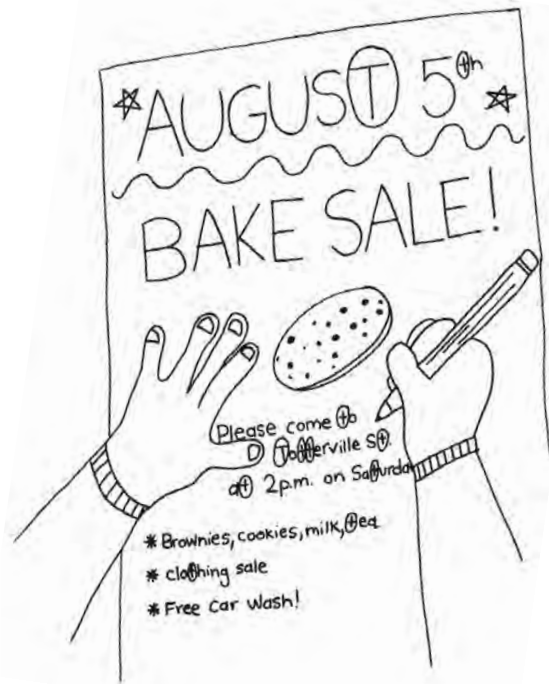 AUGUST 5th
BAKE SALE!
Please come to
Totterville St.
at 2p.m. on Saturda
* Brownies, cookies, milk, tea
* clothing sale
* Free car wash!